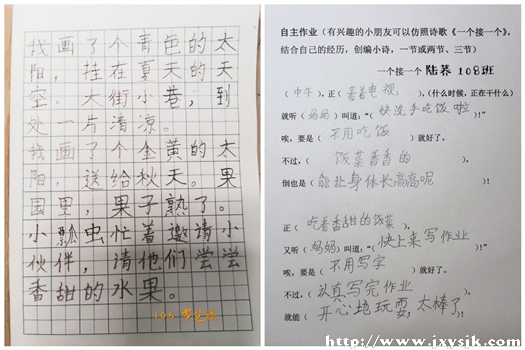 我画了个青色的太
阳，挂在夏天的天
空。大街小巷，到
处一片清凉。
我画了个金黄的太
阳，送给秋天。果
园里，果子熟了。
小瓢虫忙着邀请小
伙伴，请他们尝尝
香甜的水果。
自主作业（有兴趣的小朋友可以仿照诗歌《一个接一个》，
结合自己的经历，创编小诗，一节或两节、三节）
一个接一个 陆荞 108班
（中午），正（看着电视），（什么时候，正在干什么）
就听（妈妈）叫道：“（快洗手吃饭啦）！”
唉，要是（不用吃饭）就好了。
不过，（饭菜香香的），
倒也是（能让身体长高高呢）！
正（吃着香甜的饭菜），
又听（妈妈）叫道：“（快上来写作业）！”
唉，要是（不用写字）就好了。
不过，（认真写完作业），
就能（开心地玩耍，太棒了）！
http://www.jxysjk.com/